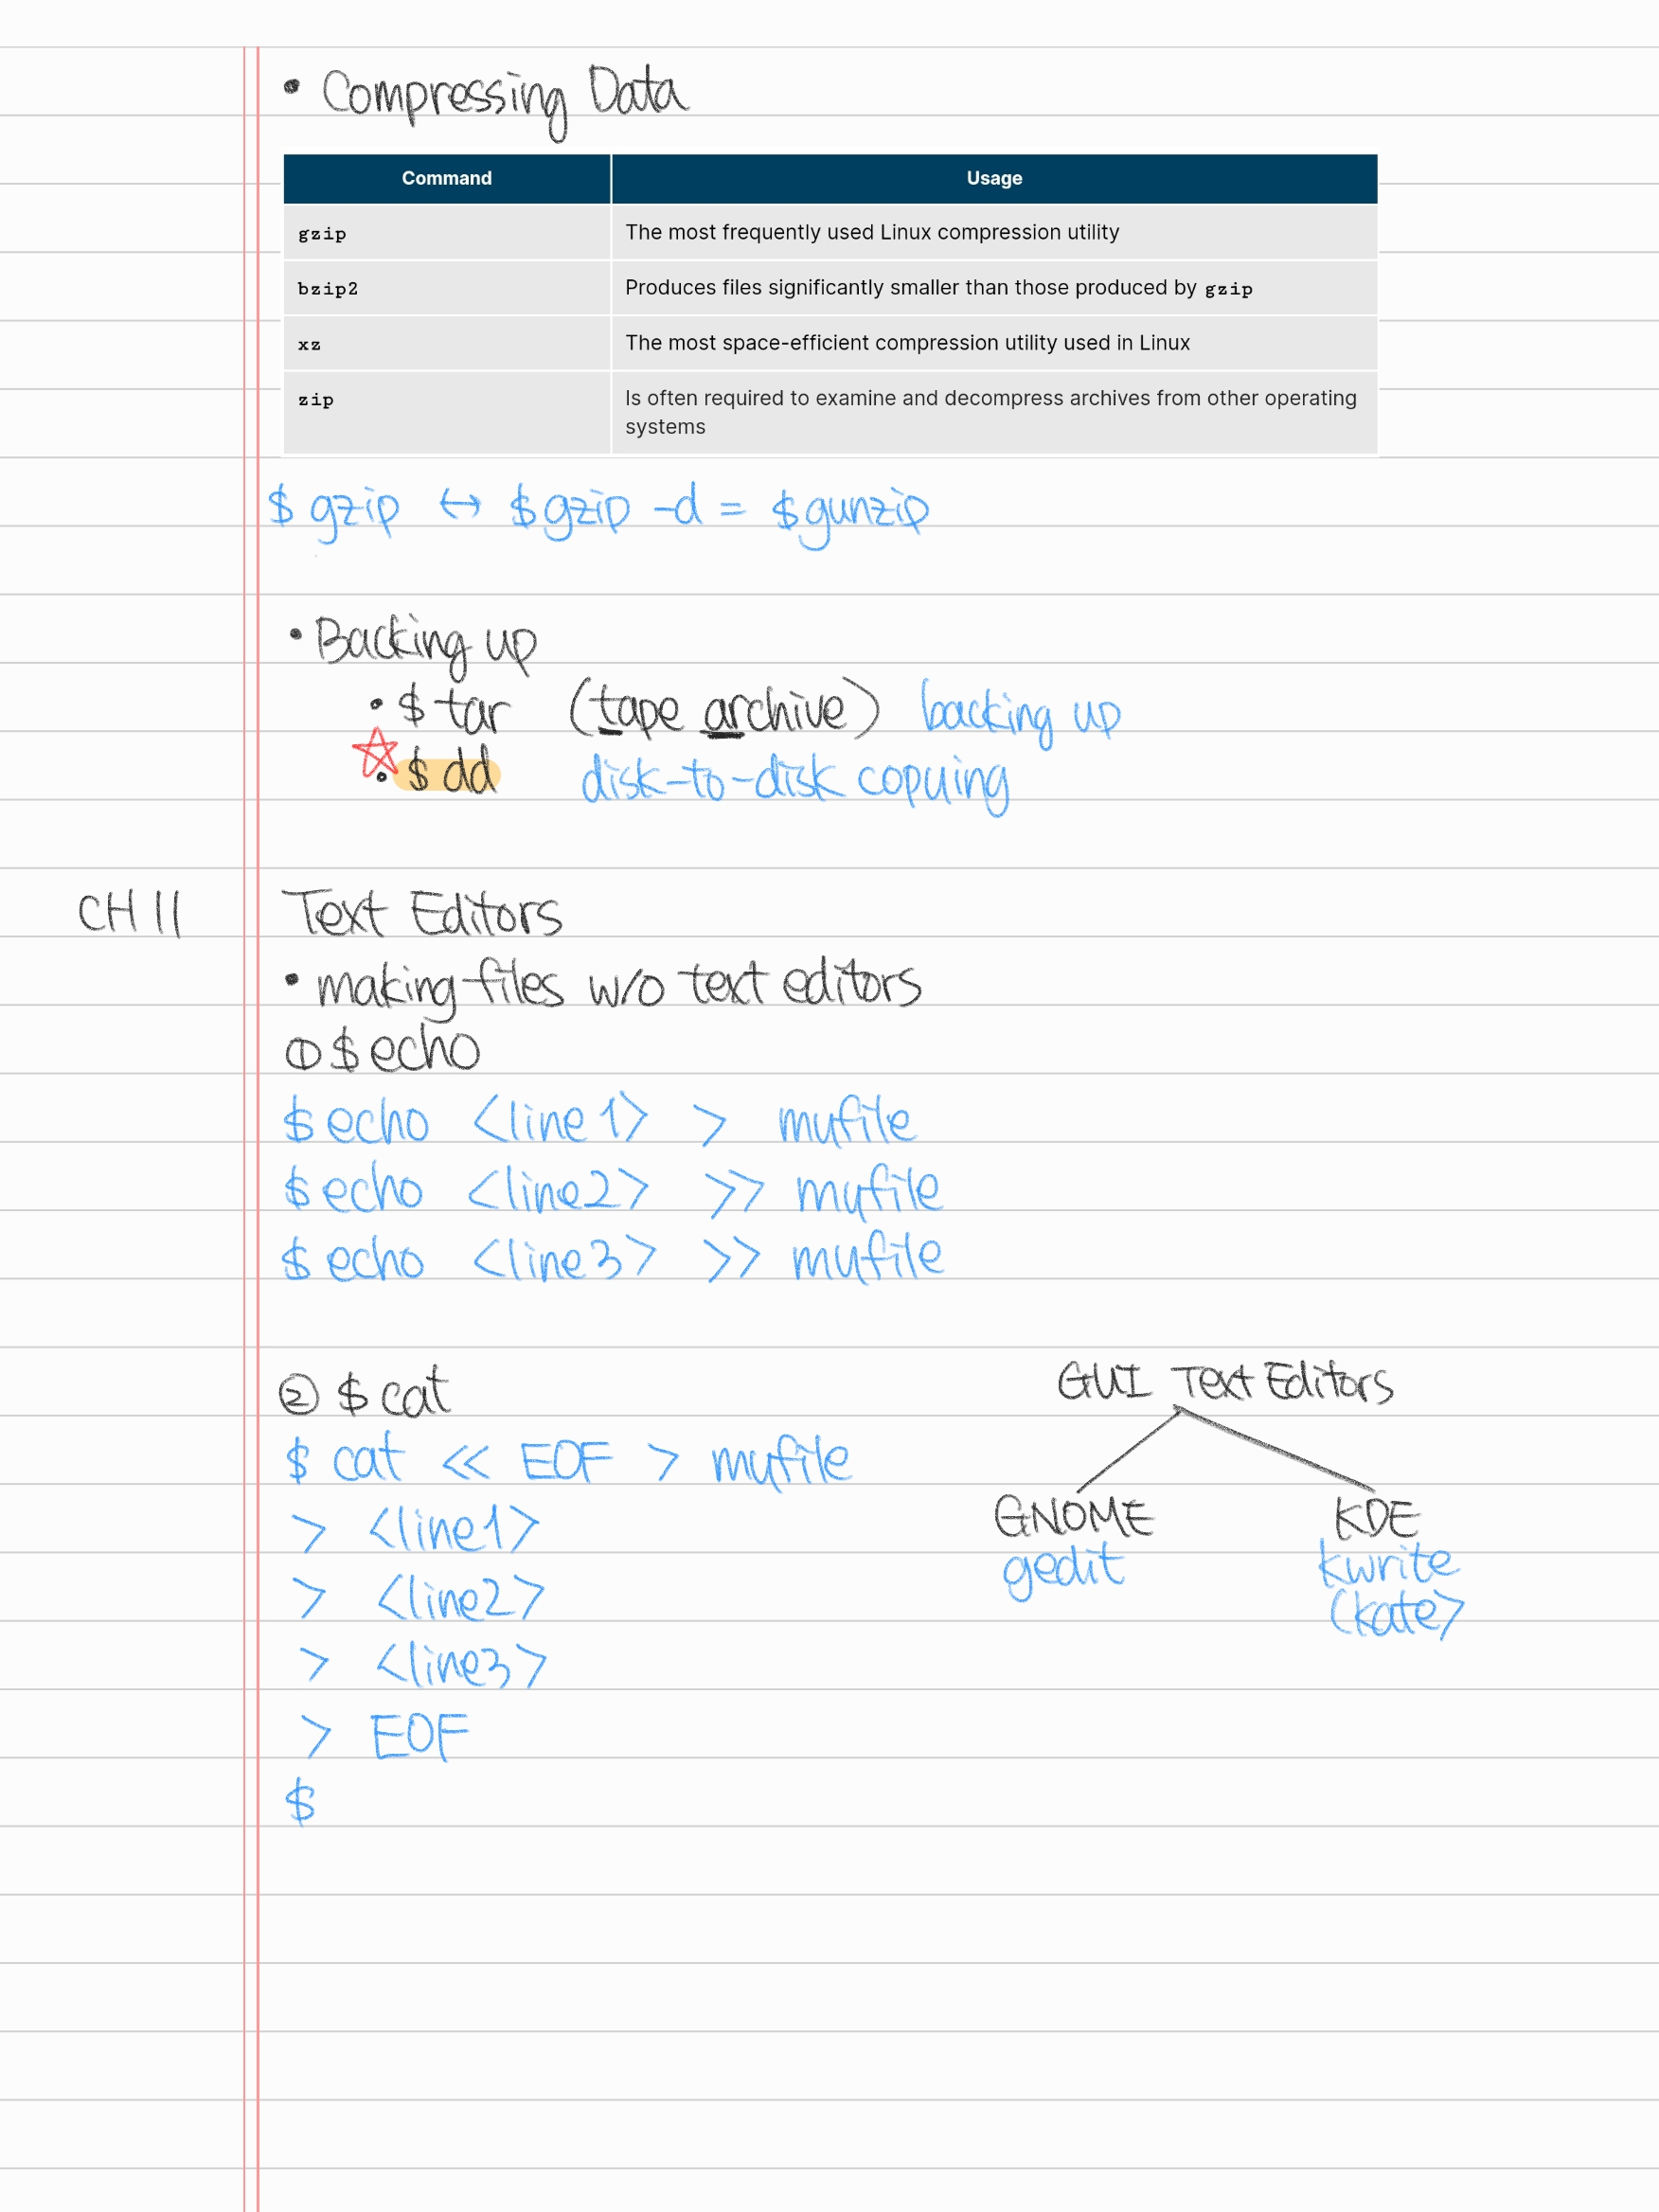 • Compressing Data
Command Usage
gzip The most frequently used Linux compression utility
bzip2 Produces files significantly smaller than those produced by gzip
xz The most space-efficient compression utility used in Linux
zip Is often required to examine and decompress archives from other operating
systems
$ gzip ↔ $gzip -d = $gunzip
• Backing up
• $ tar (tape archive) backing up
☆ • $ dd disk-to-disk copuing
CH 11 Text Editors
• making files w/o text editors
① $ echo
$ echo <line1> > myfile
$ echo <line2> >> myfile
$ echo <line3> >> myfile
② $ cat
$ cat << EOF > myfile
> <line1>
> <line2>
> <line3>
> EOF
$
GUI Text Editors
GNOME KDE
gedit kwrite
(kate>